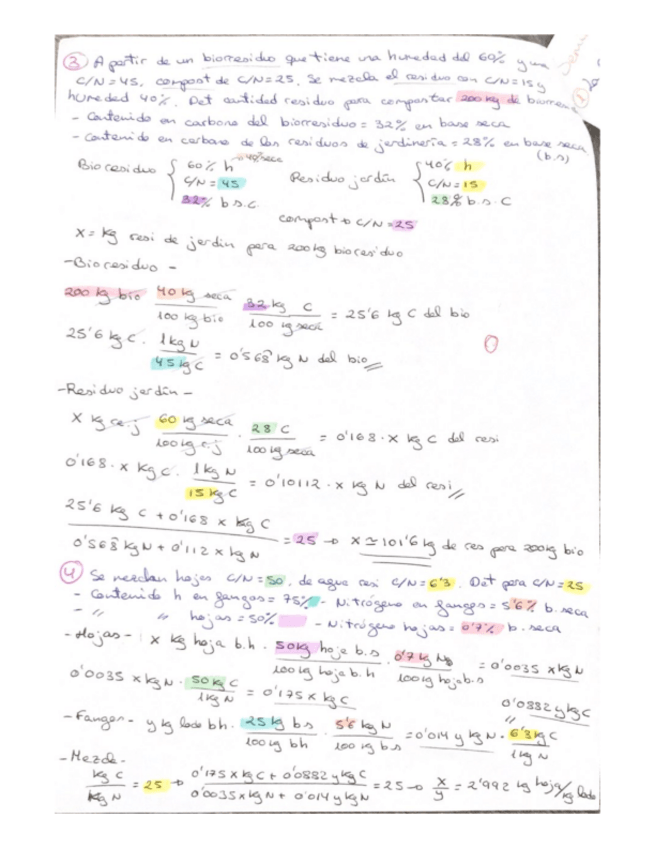 ③ A partir de un biorresiduo que tiene una humedad del 60% y una
C/N=45, compost de C/N=25. Se mezcla el residuo con C/N=15 y
humedad 40%. Det cantidad residuo para compostar 200 kg de biorresi
- Contenido en carbono del biorresiduo = 32% en base seca
- Contenido en carbono de los residuos de jardinería = 28% en base seca
(b.s)
Bioresiduo { 60% h → 40% seca
C/N = 45
32% b.s.C.
Residuo jardín { 40% h
C/N = 15
28% b.s. C
compost → C/N = 25
X = kg resi de jardín para 200 kg bioresiduo
- Bioresiduo -
200 kg bio 40 kg seca / 100 kg bio 32 kg C / 100 kg seca = 25'6 kg C del bio
25'6 kg C. 1 kg N / 45 kg C = 0'568 kg N del bio
- Residuo jardín -
X kg r.j 60 kg seca / 100 kg r.j · 28 C / 100 kg seca = 0'168 · X kg C del resi
0'168 · X kg C. 1 kg N / 15 kg C = 0'10112 · X kg N del resi
25'6 kg C + 0'168 x kg C / 0'568 kg N + 0'112 x kg N = 25 → X ≃ 101'6 kg de res para 200 kg bio
④ Se mezclan hojas C/N = 50, de agua resi C/N = 6'3. Det para C/N = 25
- Contenido h en fangos = 75% - Nitrógeno en fangos = 5'6% b. seca
- " " hojas = 50% - Nitrógeno hojas = 0'7% b. seca
- Hojas - X kg hoja b.h. 50 kg hoja b.s / 100 kg hoja b.h · 0'7 kg N / 100 kg hoja b.s = 0'0035 x kg N
0'0035 x kg N · 50 kg C / 1 kg N = 0'175 x kg C
0'0882 y kg C
"
- Fangos - y kg lodo bh. 25 kg b.s / 100 kg bh · 5'6 kg N / 100 kg b.s = 0'014 y kg N · 6'3 kg C / 1 kg N
- Mezcla -
kg C / kg N = 25 → 0'175 x kg C + 0'0882 y kg C / 0'0035 x kg N + 0'014 y kg N = 25 → x / y = 2'992 kg hoja/kg lodo